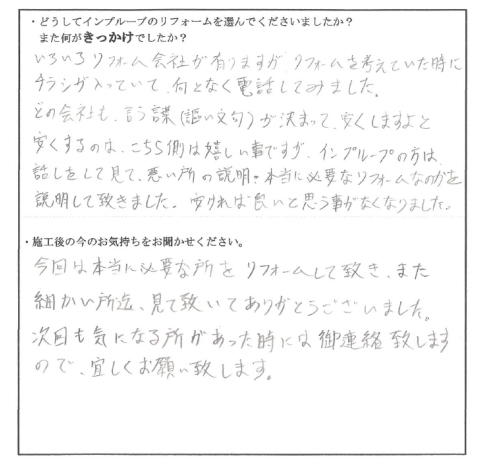 ・どうしてインプルーブのリフォームを選んでくださいましたか？
また何がきっかけでしたか？
いろいろリフォーム会社が有りますが、リフォームを考えていた時に
チラシが入っていて、何となく電話してみました。
どの会社も、言う謀(謳い文句)が決まって、安くしますよと
安くするのは、こちら側は嬉しい事ですが、インプループの方は、
話しをして見て、悪い所の説明・本当に必要なリフォームなのかを
説明して致きました。安ければ良いと思う事がなくなりました。
・施工後の今のお気持ちをお聞かせください。
今回は本当に必要な所をリフォームして致き、また
細かい所迄、見て致いてありがとうございました。
次回も気になる所があった時には御連絡致します
ので、宜しくお願い致します。